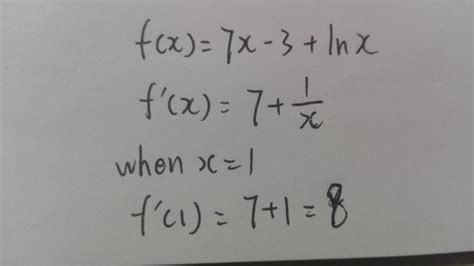 f(x) = 7x - 3 + ln x
f'(x) = 7 + 1/x
when x = 1
f'(1) = 7 + 1 = 8